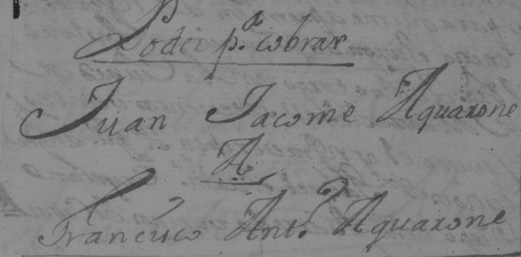 Poder p.ª cobrar
Juan Jacome Aquarone
A
Francisco Ant.º Aquarone